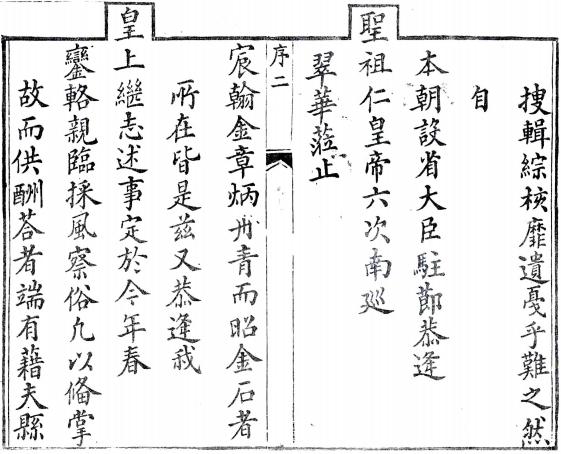 搜輯綜核靡遺戞乎難之然
自
本朝設省大臣駐節恭逢
聖祖仁皇帝六次南廵
翠華蒞止
序二
宸翰金章炳丹青而昭金石者
所在皆是兹又恭逢我
皇上繼志述事定於今年春
鑾輅親臨採風察俗凡以偹掌
故而供酬荅者端有藉夫縣